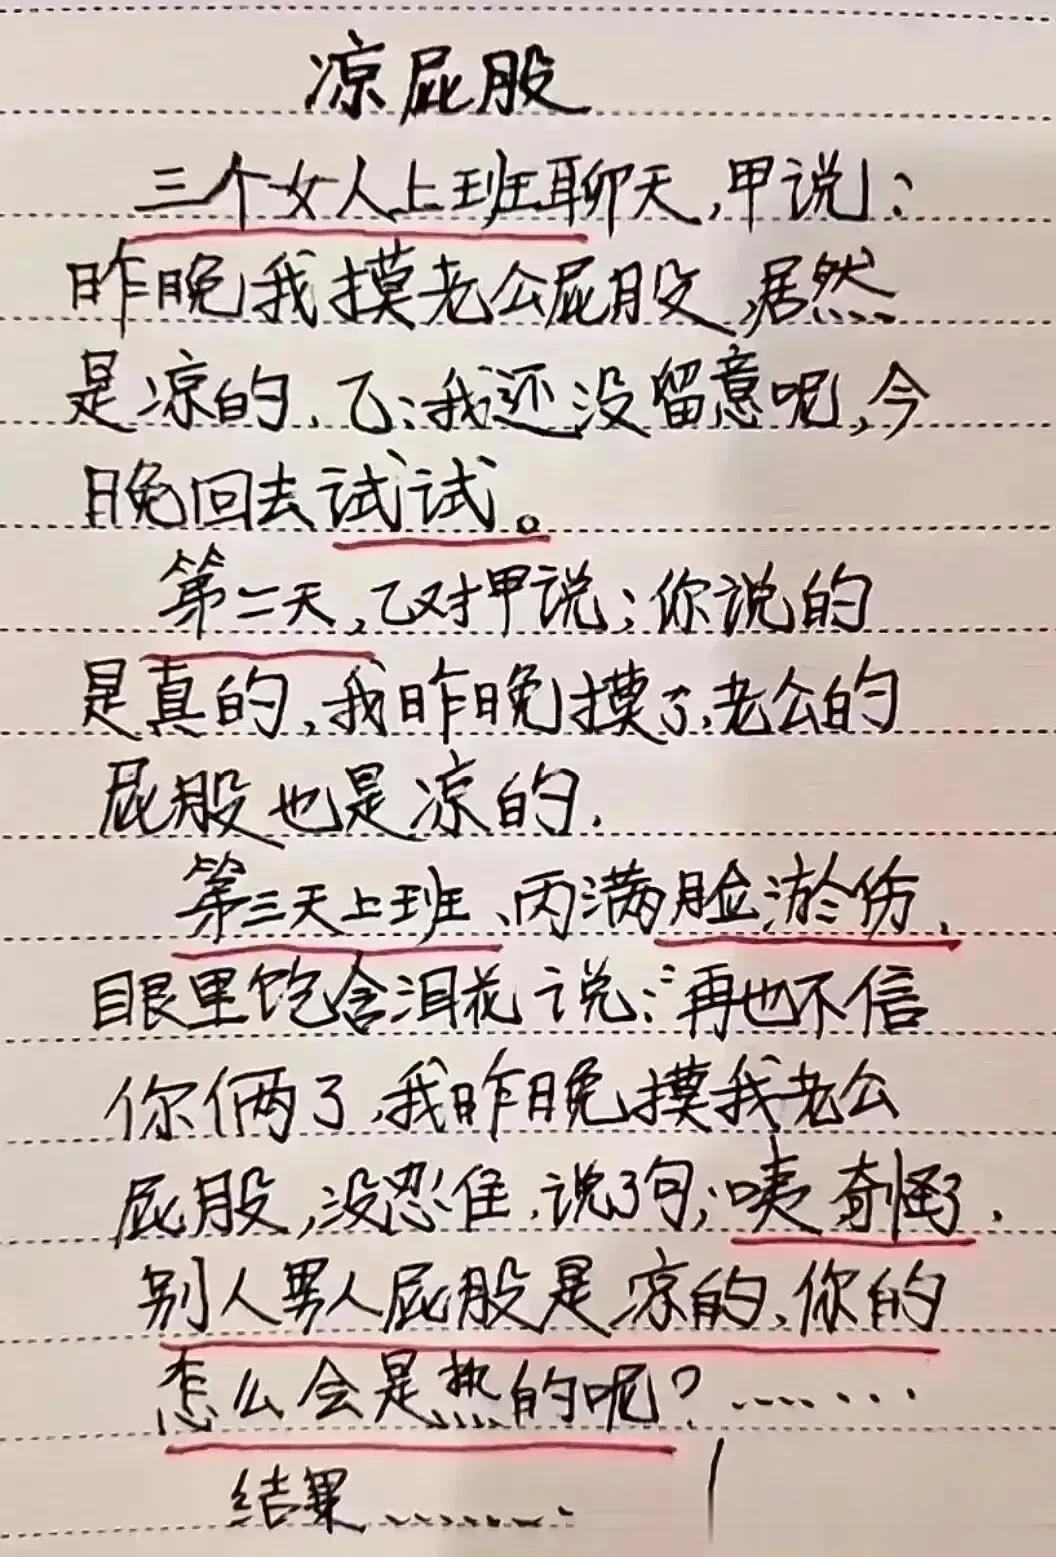 凉屁股
三个女人上班聊天,甲说:
昨晚我摸老公屁股,居然
是凉的,乙:我还没留意呢,今
晚回去试试。
第二天,乙对甲说:你说的
是真的,我昨晚摸了,老公的
屁股也是凉的.
第三天上班、丙满脸淤伤,
眼里饱含泪花说:再也不信
你俩了,我昨晚摸我老公
屁股,没忍住,说了句;咦奇怪了,
别人男人屁股是凉的,你的
怎么会是热的呢?……
结果………